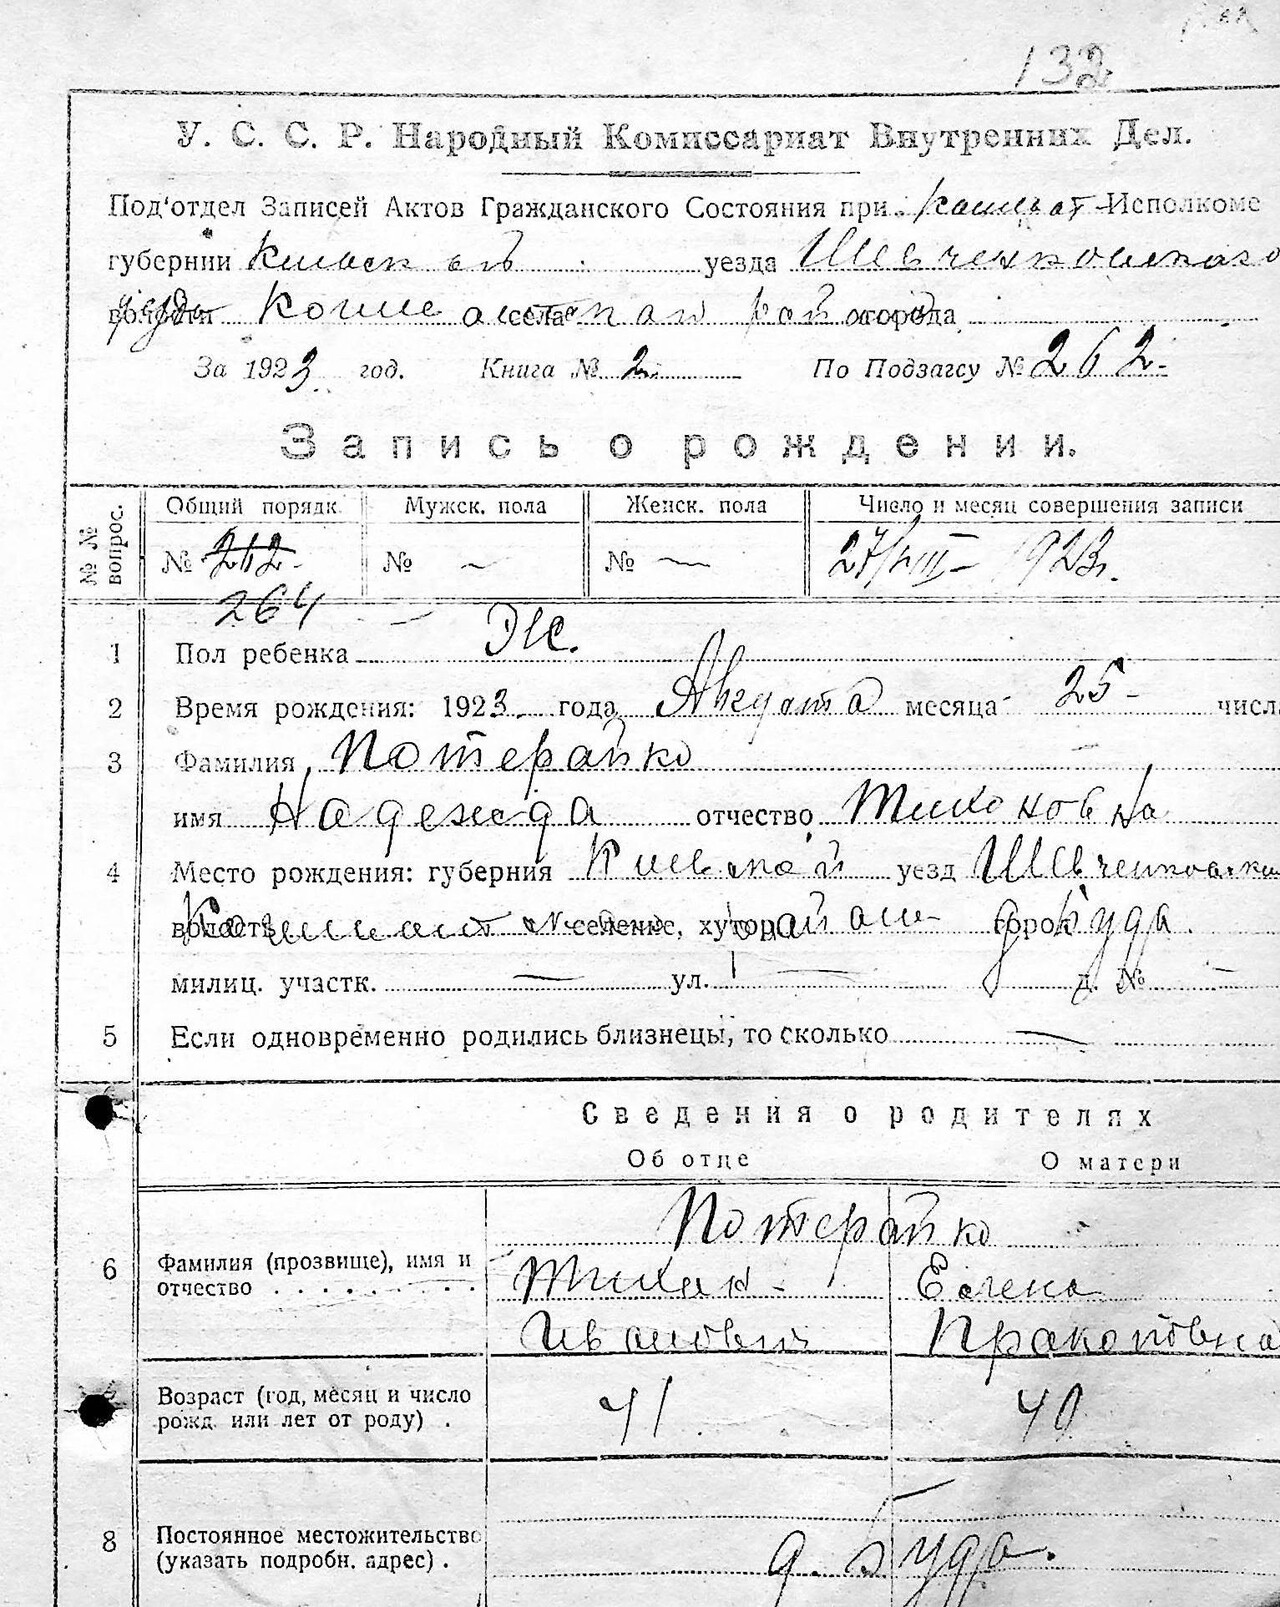 132
У. С. С. Р. Народный Комиссариат Внутренних Дел.
Под'отдел Записей Актов Гражданского Состояния при Исполкоме
губернии уезда Шевченковского
волости села города
За 1923 год. Книга № 2. По Подзагсу № 262.
Запись о рождении.
№ № вопрос. Общий порядк. Мужск. пола Женск. пола Число и месяц совершения записи
№ 262. № — № — 27/VIII – 1923 г.
264
1 Пол ребенка Ж.
2 Время рождения: 1923 года Августа месяца 25 числа
3 Фамилия Потерайко
имя Надежда отчество Тихоновна
4 Место рождения: губерния Киевской уезд Шевченковский
волость селение, хутор город д. Буда.
милиц. участк. — ул. — д. № —
5 Если одновременно родились близнецы, то сколько —
Сведения о родителях
Об отце О матери
Потерайко
6 Фамилия (прозвище), имя и Тихон Елена
отчество Иванович Прокоповна
7 Возраст (год, месяц и число 41 40
рожд. или лет от роду) .
8 Постоянное местожительство
(указать подробн. адрес) . д. Буда.